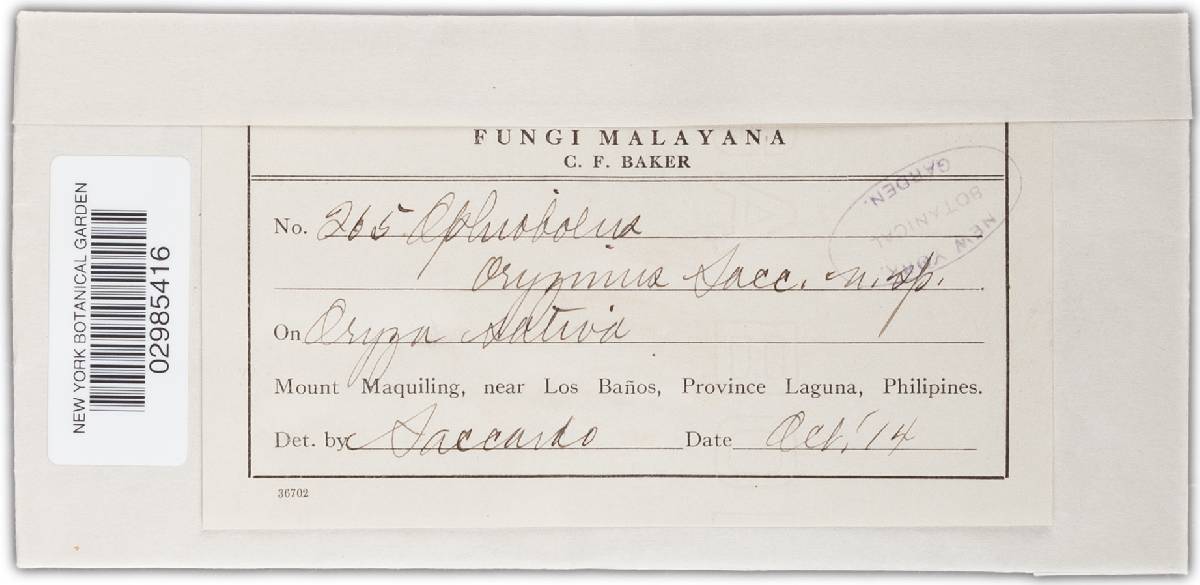 FUNGI MALAYANA
C. F. BAKER
No. 265 Ophiobolus
oryzinus Sacc. n. sp.
On Oryza sativa
Mount Maquiling, near Los Baños, Province Laguna, Philipines.
Det. by Saccardo Date Oct. '14
36702
NEW YORK BOTANICAL GARDEN
02985416
NEW YORK
BOTANICAL
GARDEN.